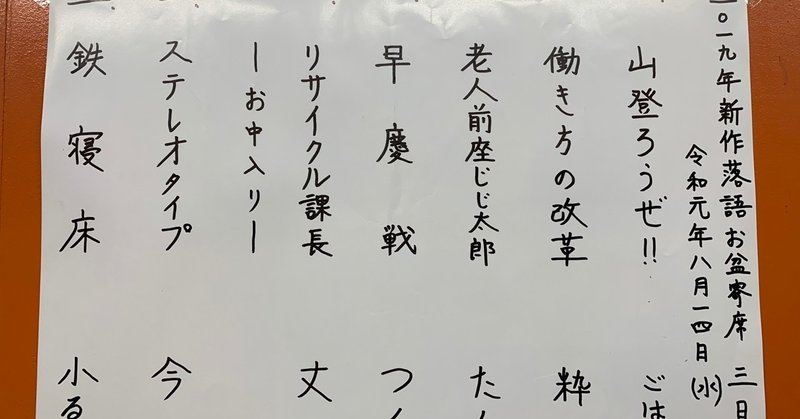 〇一九年新作落語お盆寄席 三日
令和元年八月一四日(水)
山登ろうぜ!! ごは
働き方の改革 粋
老人前座じじ太郎 た
早慶戦 つ
リサイクル課長 丈
ーお中入りー
ステレオタイプ 今
鉄寝床 小る